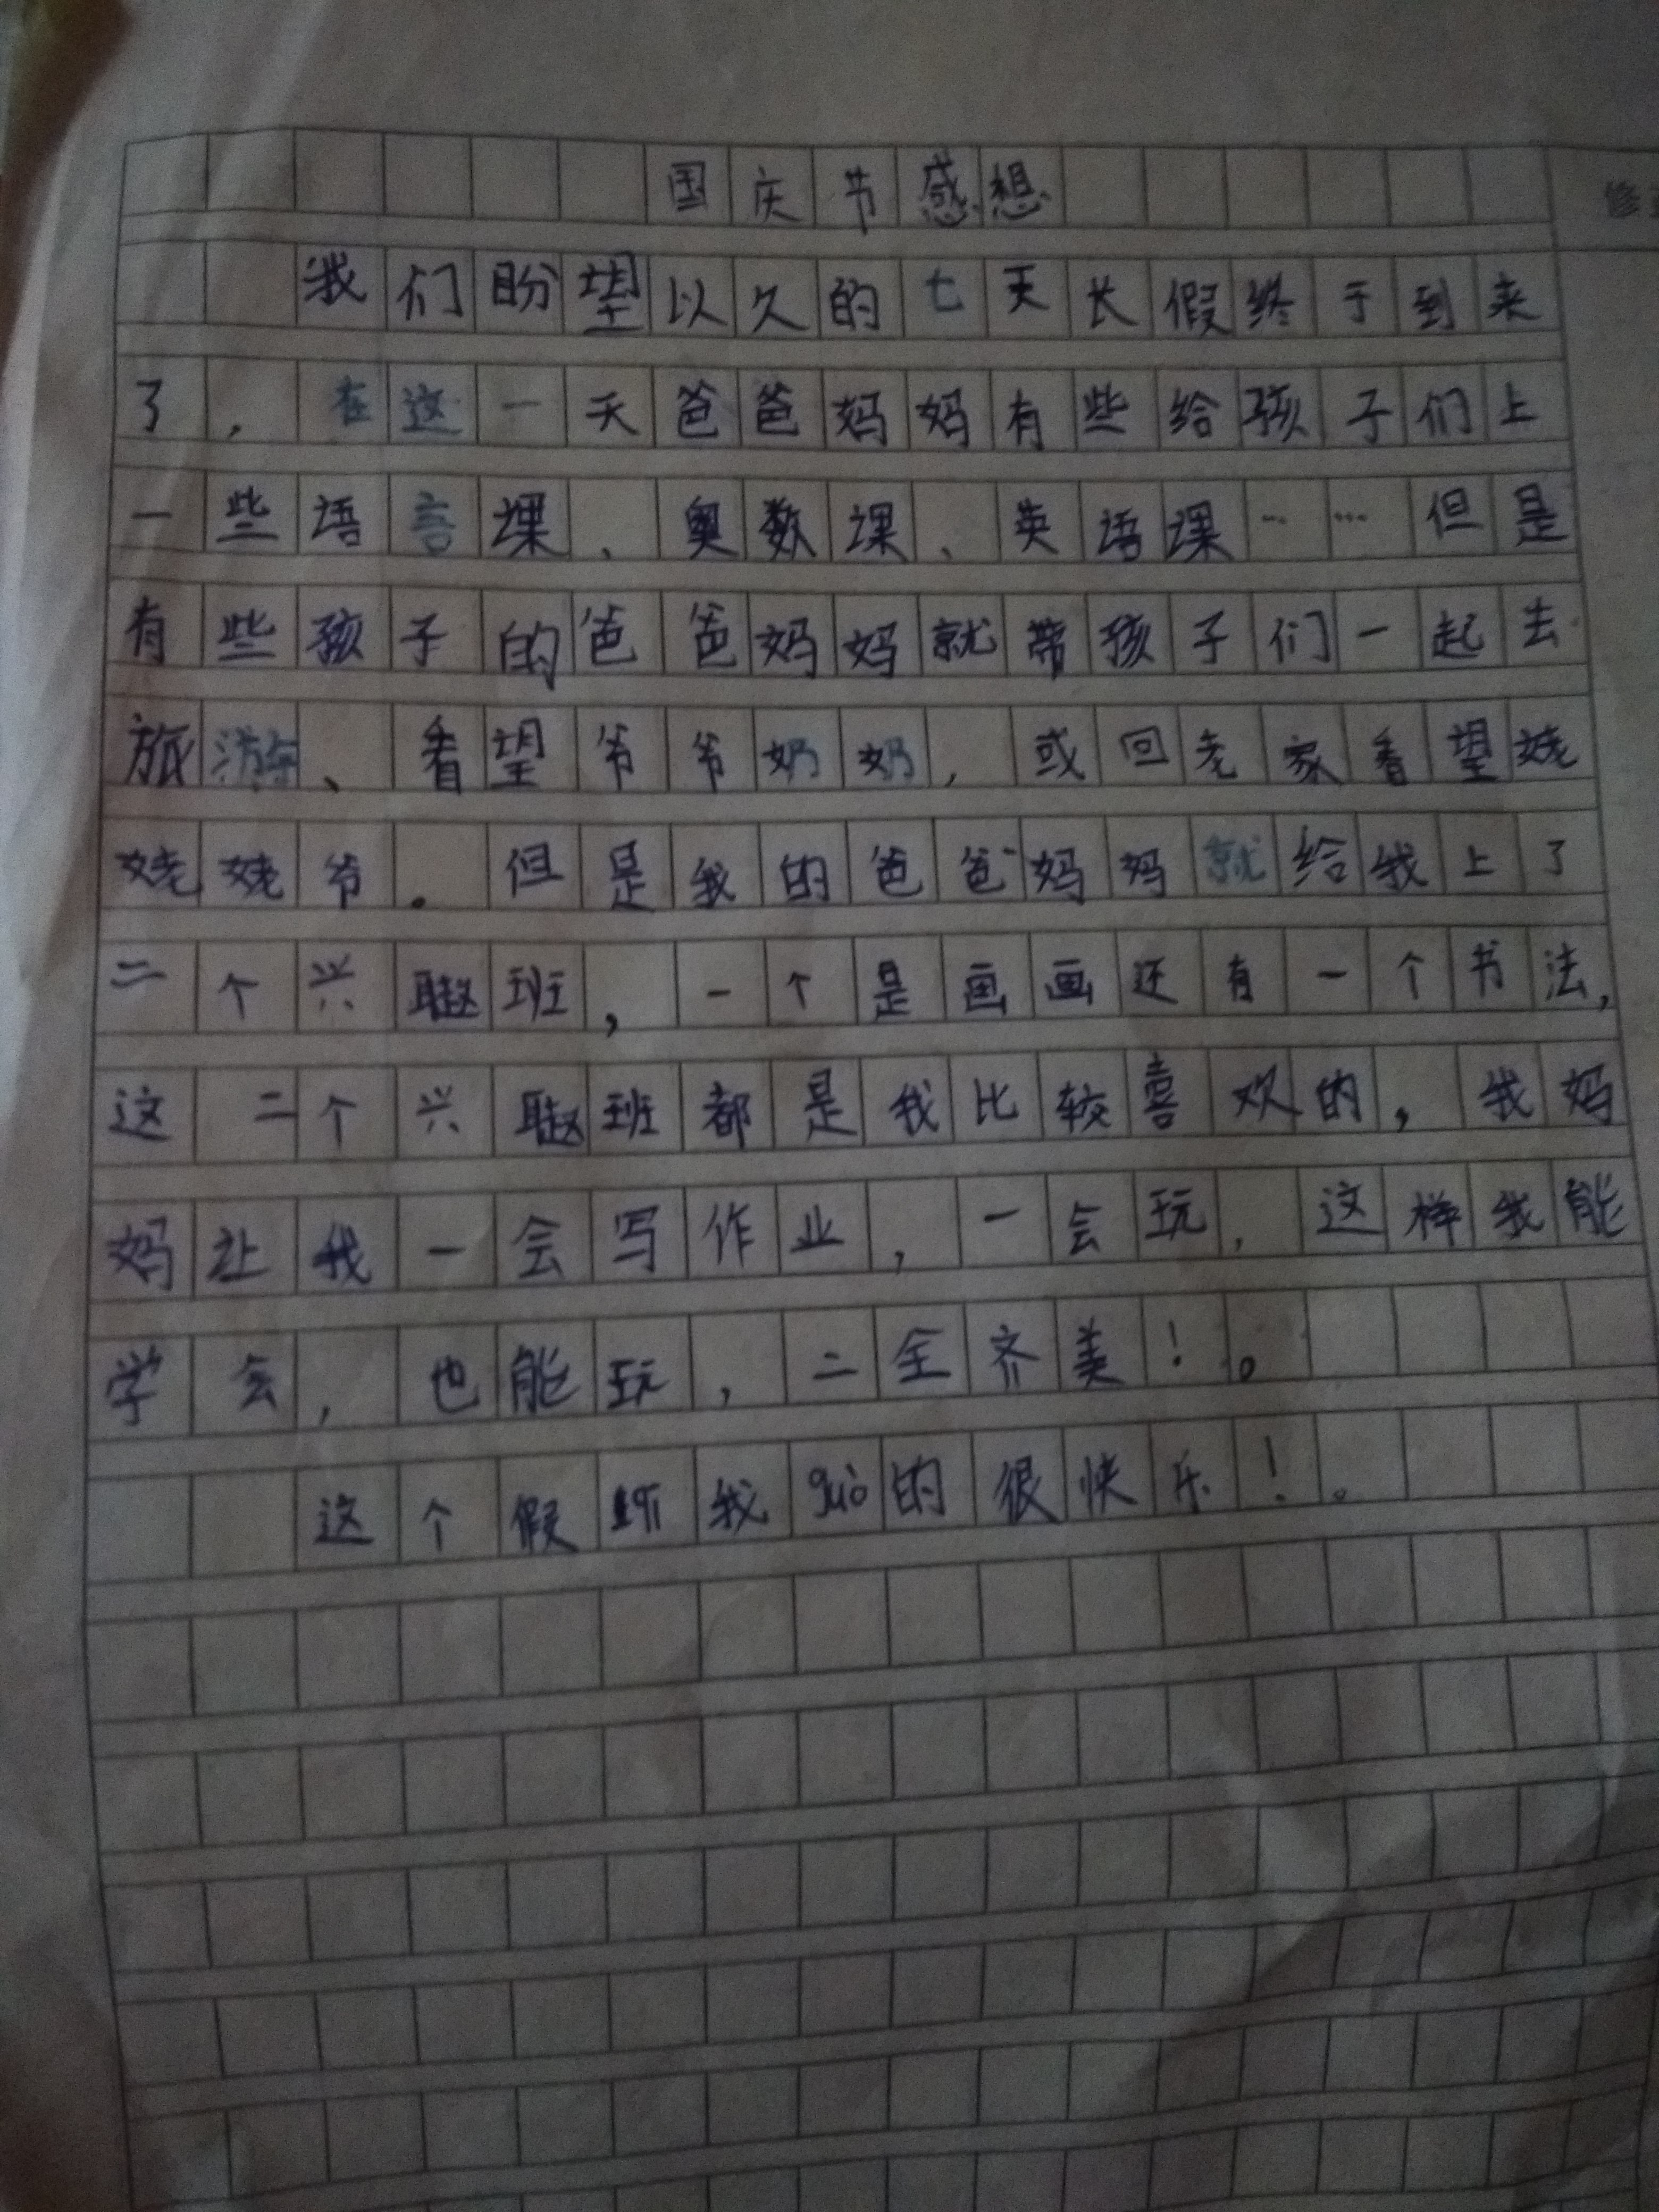 国庆节感想
我们盼望以久的七天长假终于到来
了，在这一天爸爸妈妈有些给孩子们上
一些语言课、奥数课、英语课……但是
有些孩子的爸爸妈妈就带孩子们一起去
旅游、看望爷爷奶奶，或回老家看望姥
姥姥爷。但是我的爸爸妈妈就给我上了
二个兴趣班，一个是画画还有一个书法，
这二个兴趣班都是我比较喜欢的，我妈
妈让我一会写作业，一会玩，这样我能
学会，也能玩，二全齐美！。
这个假我guò的很快乐！。